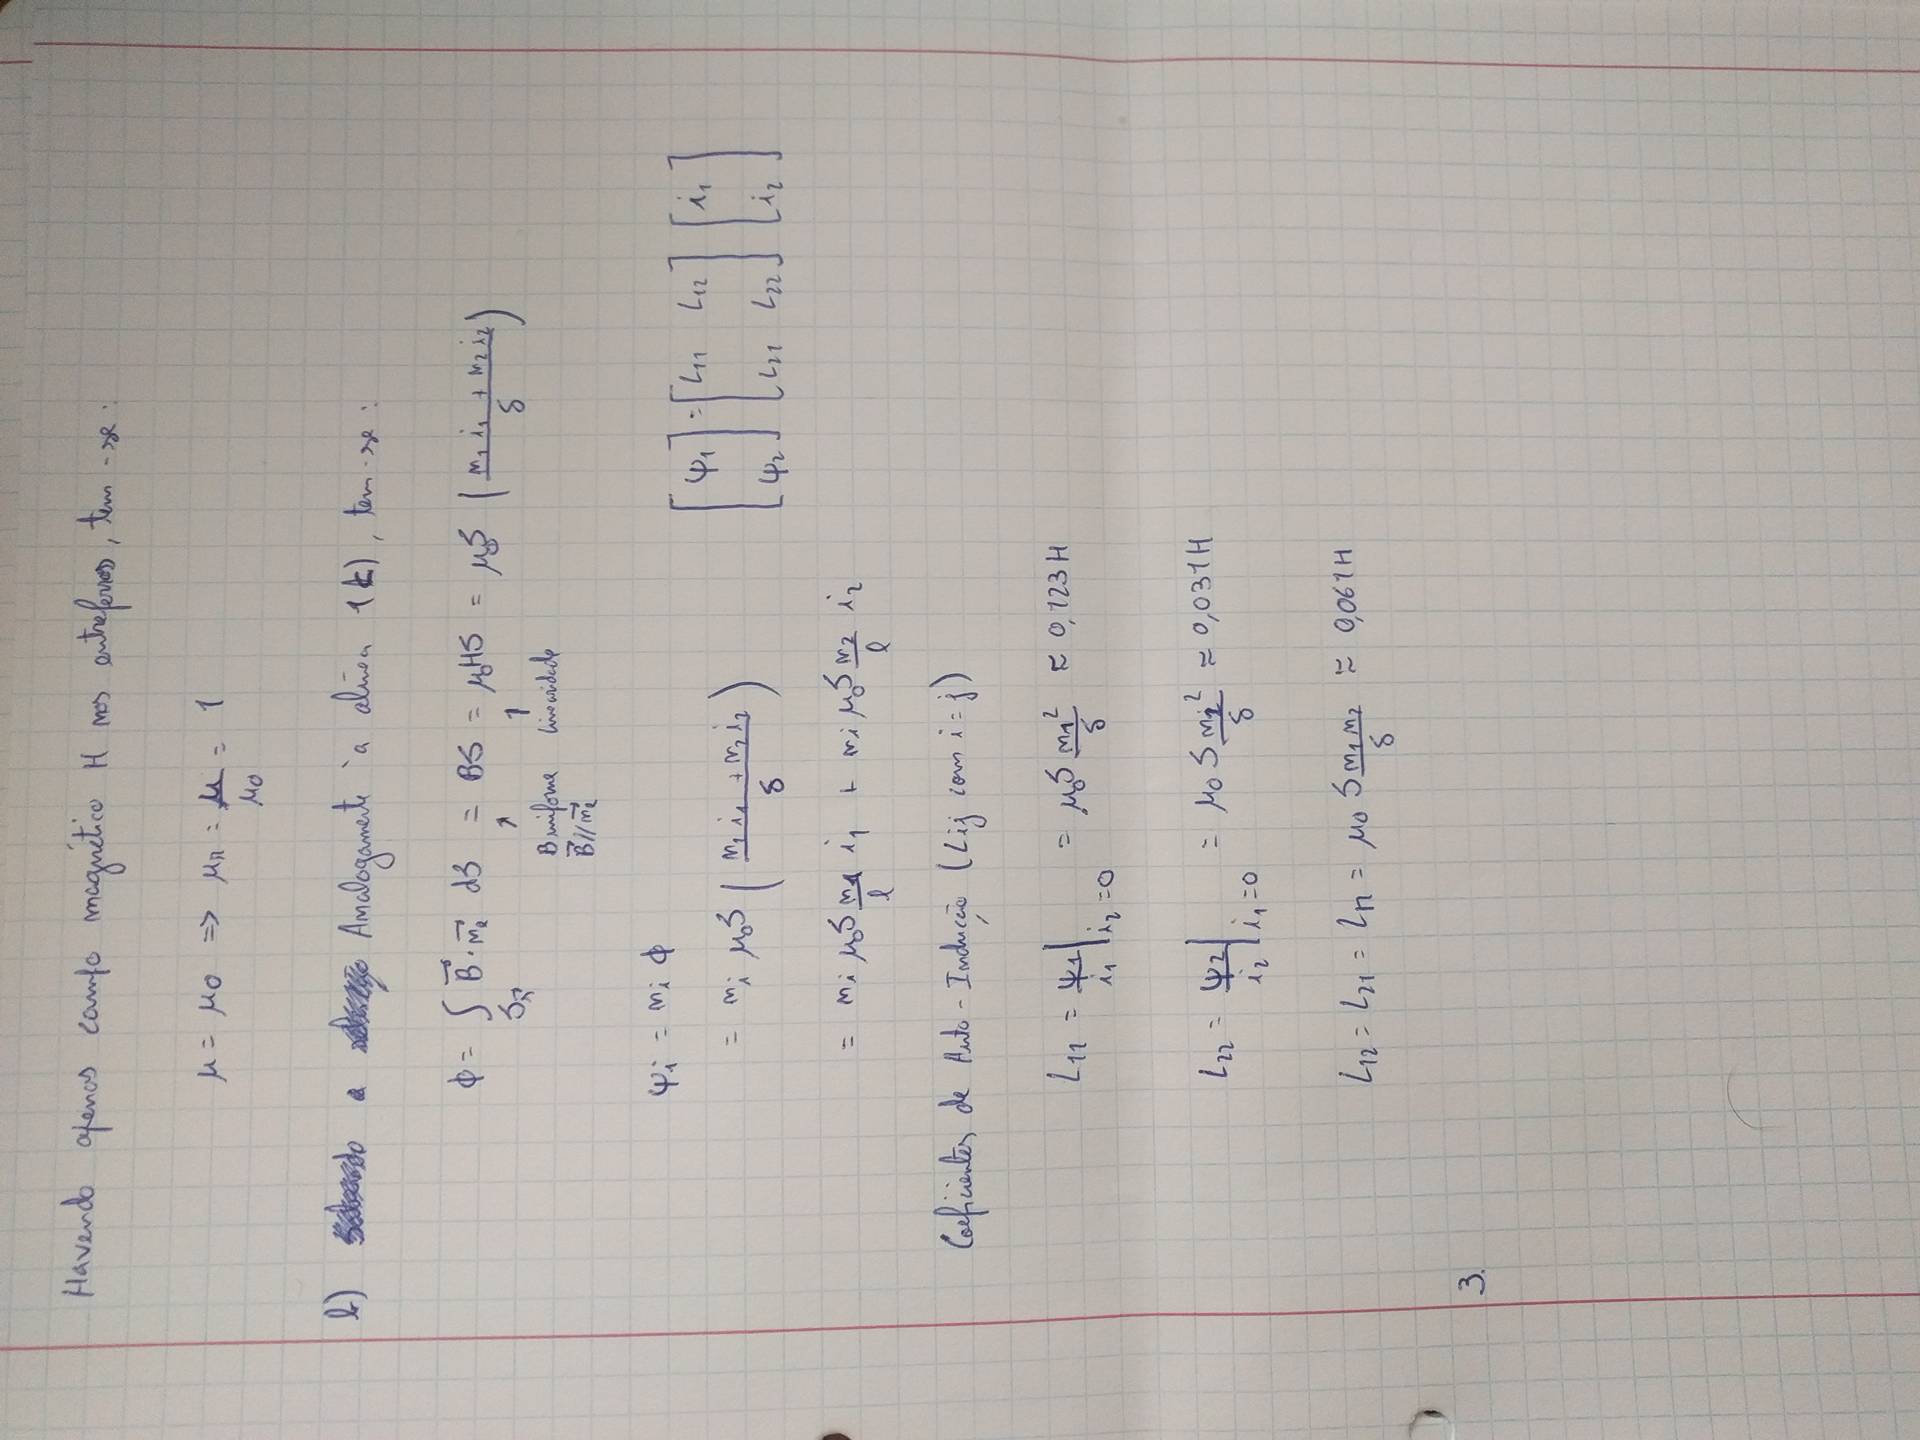 Havendo apenas campo magnético H nos entreferros, tem-se:
μ = μ0 => μr = μ/μ0 = 1
b) a Analogamente à alínea 1 b), tem-se:
ϕ = ∫Sr B⃗ · n⃗e dS = BS = μ0HS = μ0S (n1 i1 + n2 i2 / δ)
B uniforme linearidade
B⃗ // n⃗e
ψi = ni ϕ [ψ1 ψ2] = [L11 L12 L21 L22] [i1 i2]
= ni μ0S (n1 i1 + n2 i2 / δ)
= ni μ0S n1/l i1 + ni μ0S n2/l i2
Coeficientes de Auto-Indução (Lij com i=j)
L11 = ψ1/i1 |i2=0 = μ0S n1²/δ ≈ 0,123H
L22 = ψ2/i2 |i1=0 = μ0 S n2²/δ ≈ 0,031H
L12 = L21 = LM = μ0 S n1 n2/δ ≈ 0,061H
3.